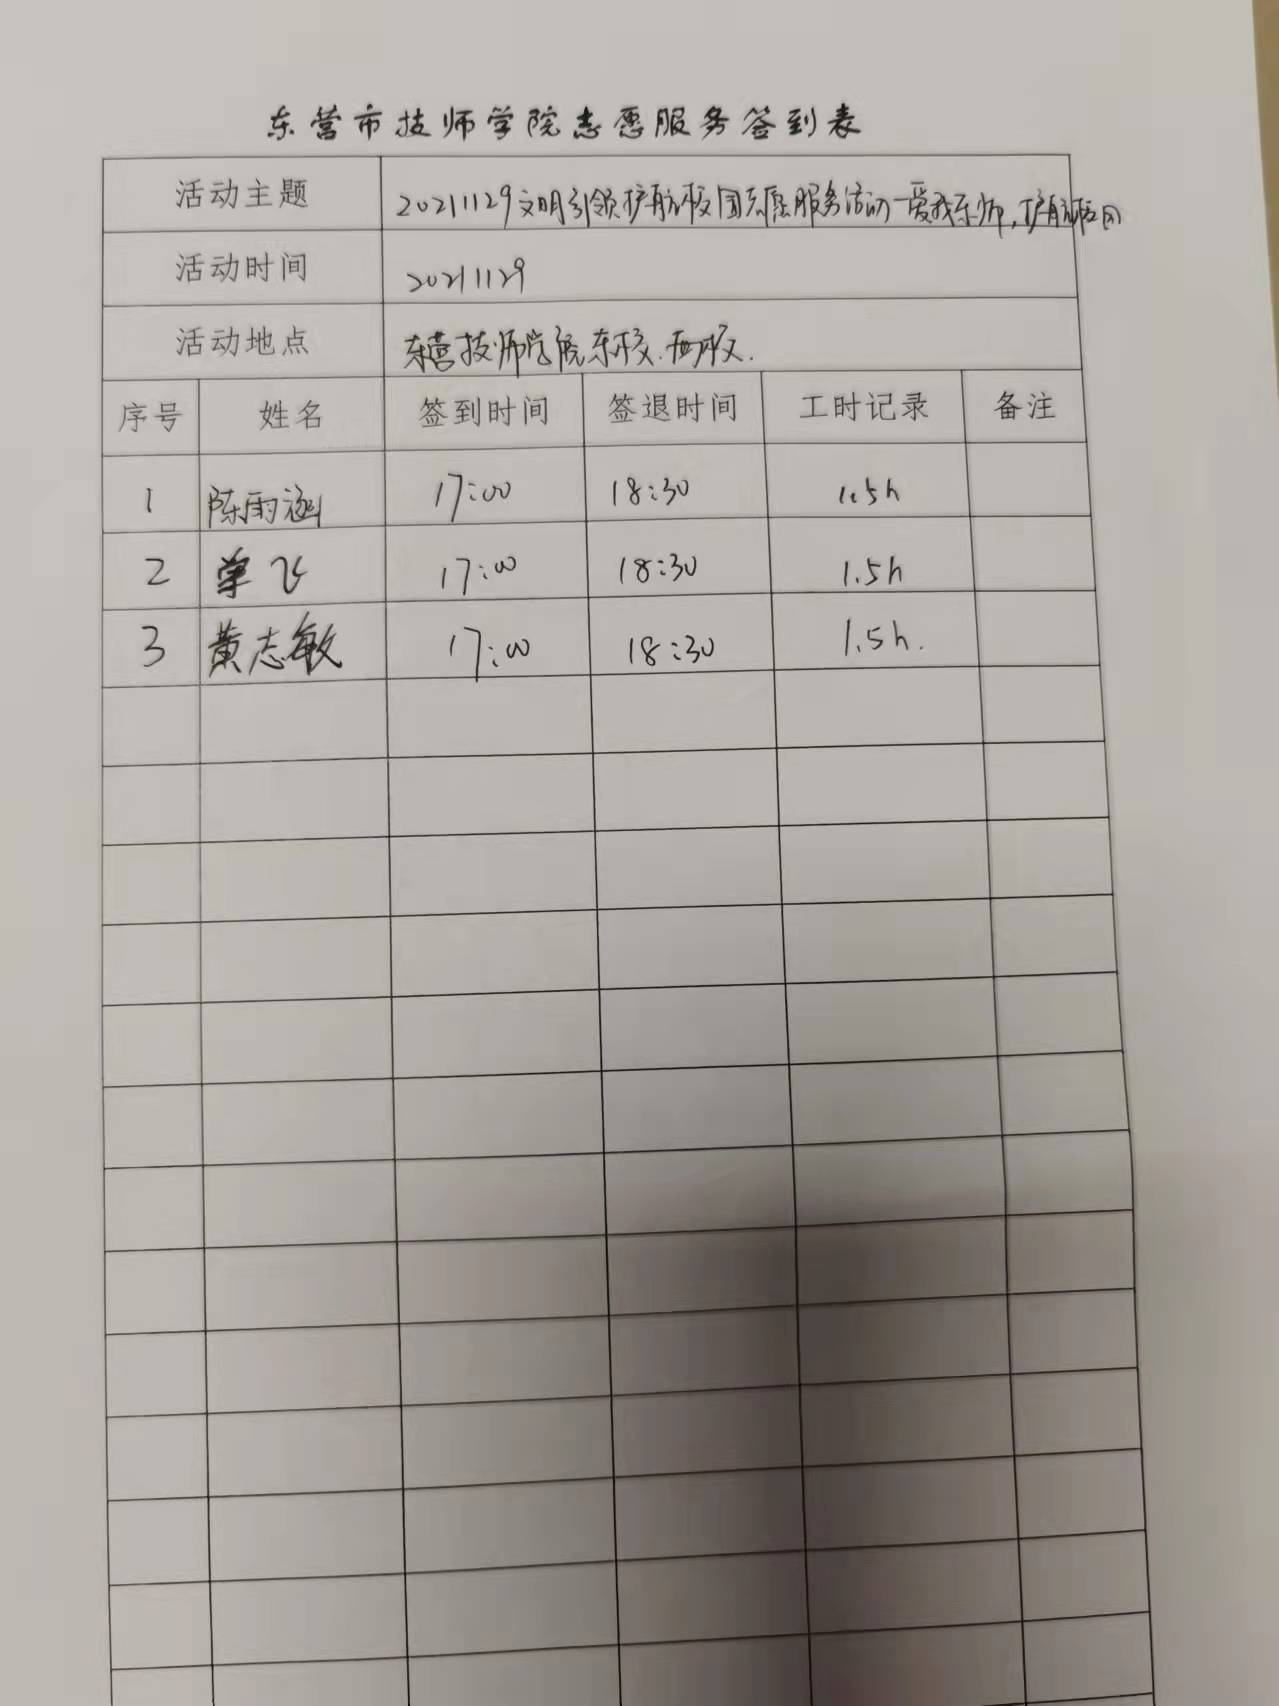 东营市技师学院志愿服务签到表
活动主题 20211129文明引领护航校园志愿服务活动—爱我东师,护航校园
活动时间 20211129
活动地点 东营技师学院东校.西校.
序号 姓名 签到时间 签退时间 工时记录 备注
1 陈雨涵 17:00 18:30 1.5h
2 飞 17:00 18:30 1.5h
3 黄志敏 17:00 18:30 1.5h.